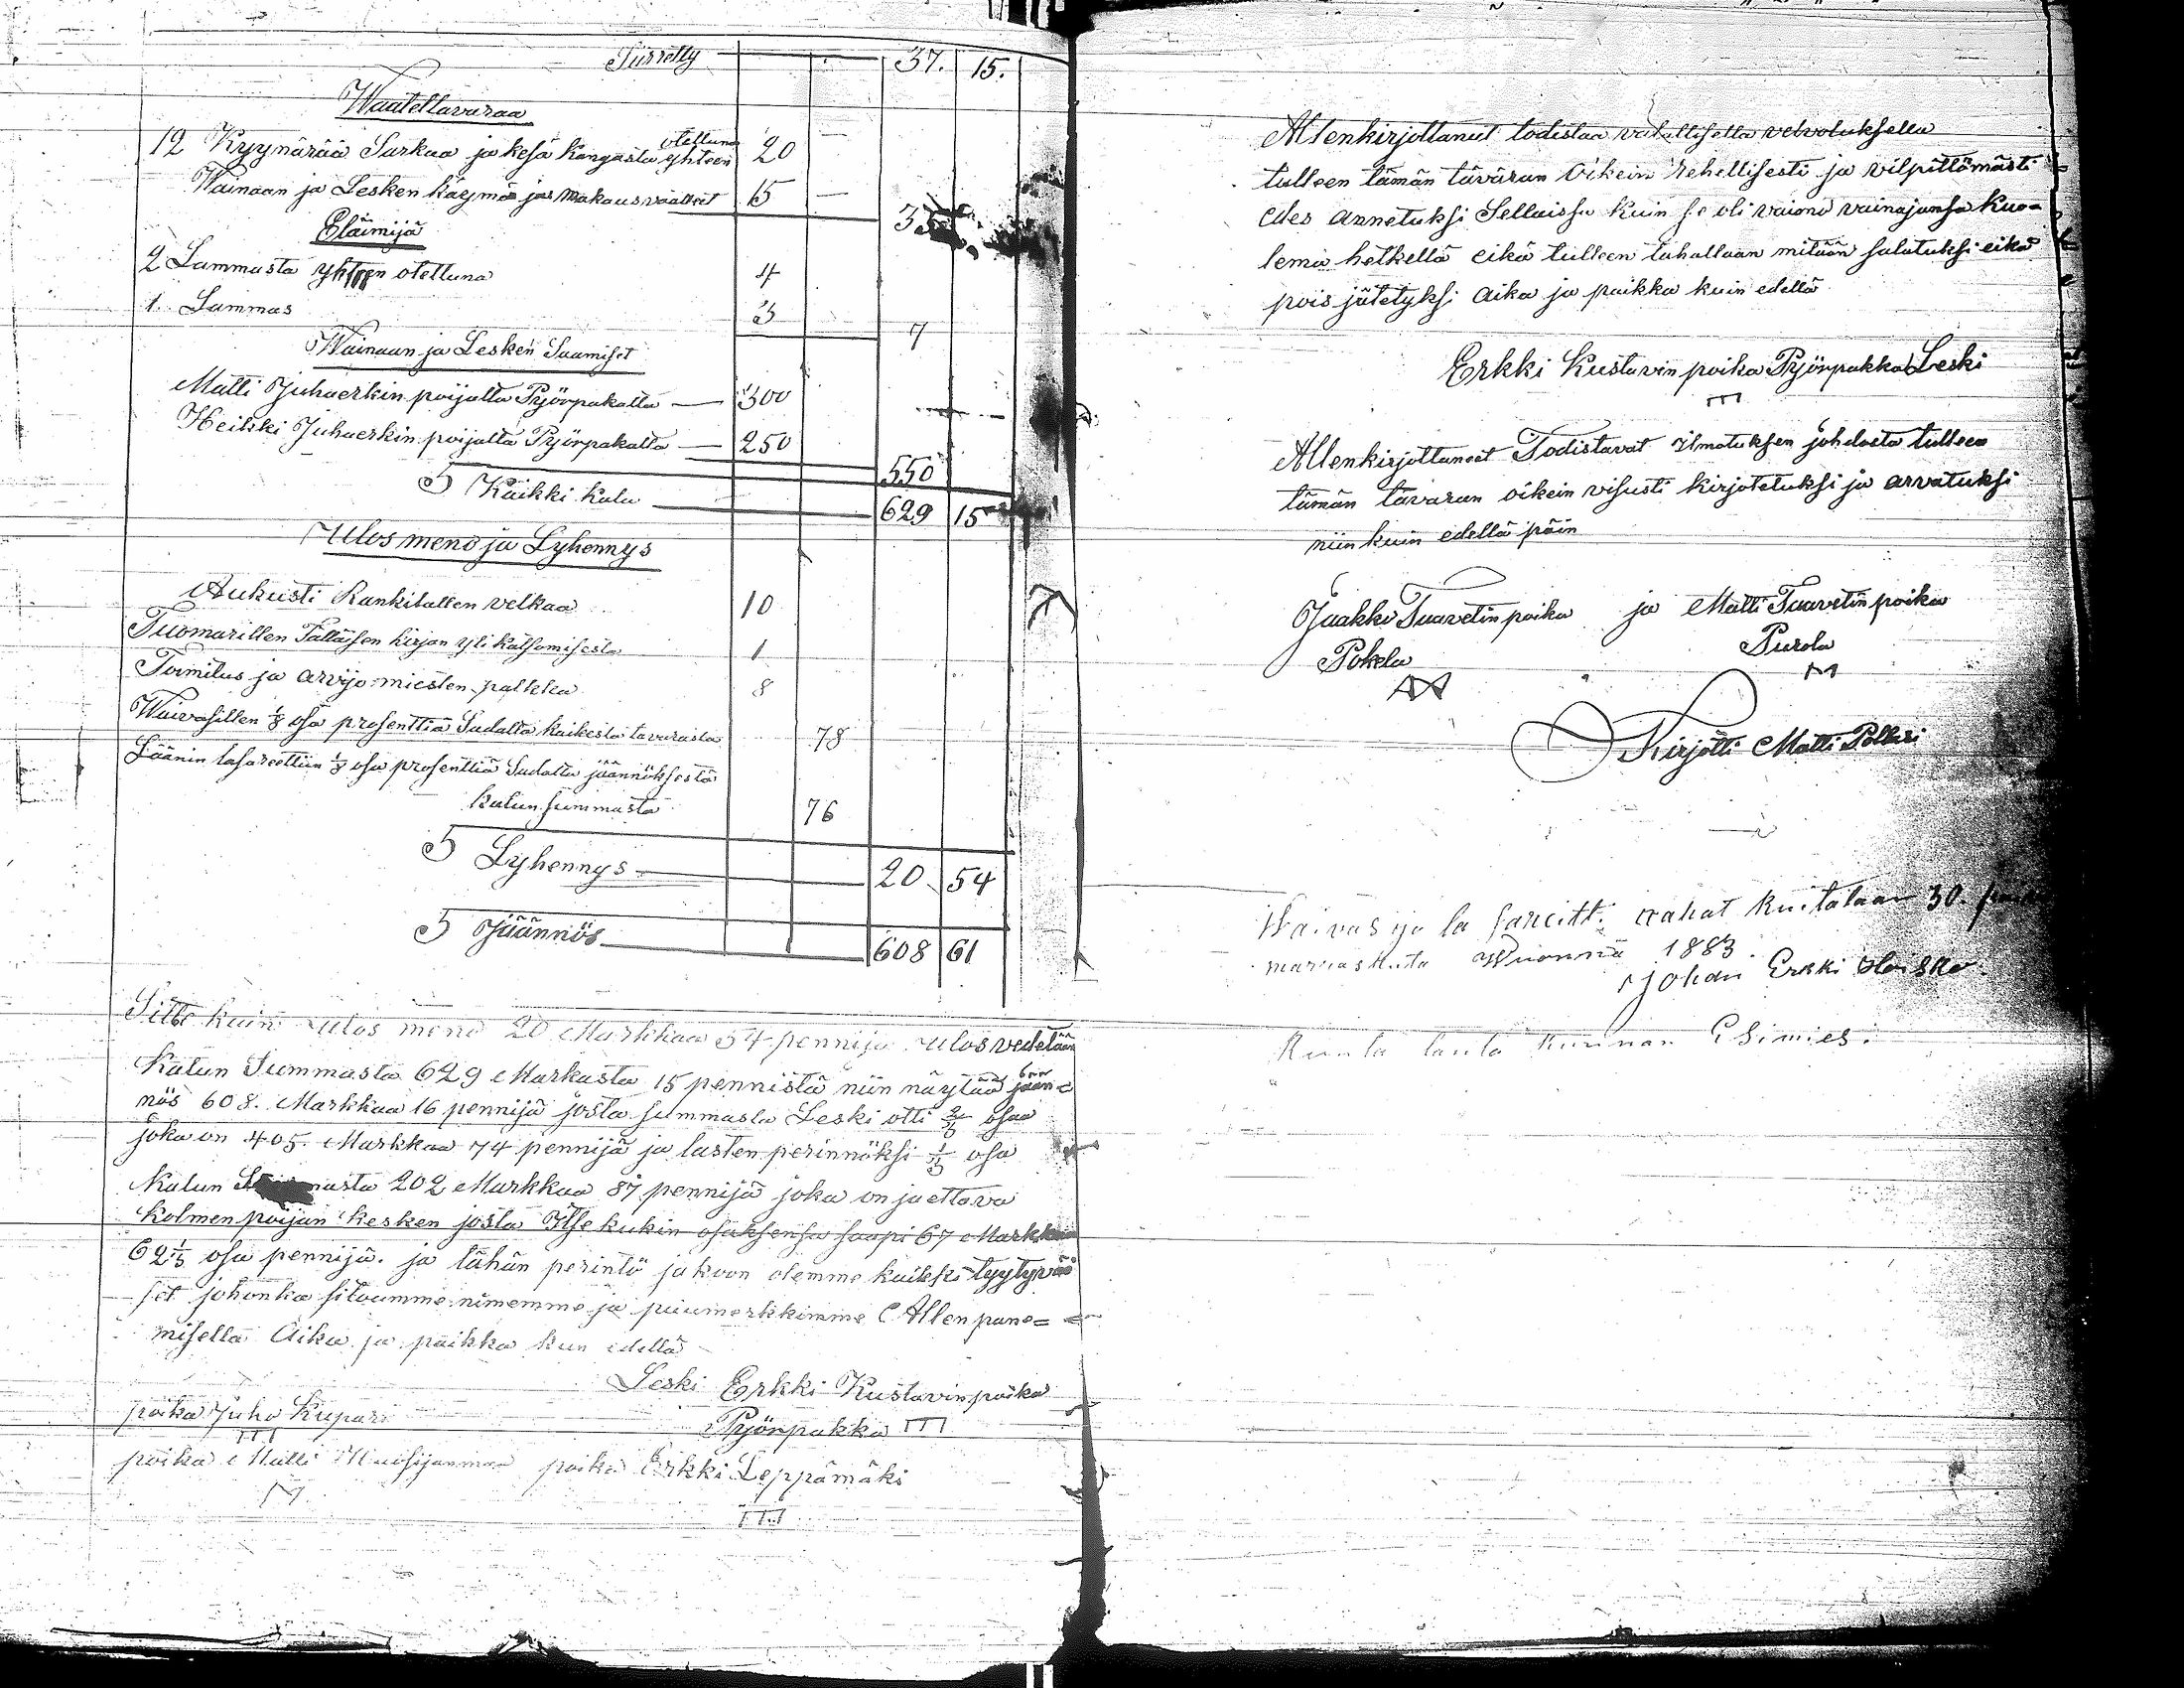 Siirretty 37. 15.
Waatettavaraa
12 Kyynärää Sarkaa ja kesä kangasta yhteen otettuna 20 —
Wainaan ja Lesken käymä ja makausvaatteet 15 — 35
Eläimijä
2 Lammasta yhteen otettuna 4
1. Lammas 3 7
Wainaan ja Lesken Saamiset
Matti Juhaerkin poijalta Pyörpakalta — 300
Heikki Juhaerkin poijalta Pyörpakalta — 250 550
S Kaikki kalu 629 15
Ulos meno ja Lyhennys
Aukusti Rankilallen velkaa 10
Tuomarillen Tälläisen kirjan yli katsomisesta 1
Toimitus ja arvijo miesten palkka 8
Waivasillen 1/8 osa prosenttia Sadalta kaikesta tavarasta 78
Läänin lasareettiin 1/8 osa prosenttia Sadalta jäännöksestä
kalun summasta 76
S Lyhennys 20 54
S Jäännös 608 61
Sitte kuin ulos meno 20 Markkaa 54 pennijä ulosvedetään
Kalun Summasta 629 Markasta 15 pennistä niin näytää jään=
nös 608. Markkaa 16 pennijä josta summasta Leski otti 2/3 osaa
joka on 405. Markkaa 74 pennijä ja lasten perinnöksi 1/3 osa
Kalun 202 Markkaa 87 pennijä joka on jaettava
Kolmen poijan kesken josta Itse kukin osaksensa saapi 67 Markkaa
62 1/3 osa pennijä. ja tähän perintö jakoon olemme kaikki tyytyväi
set johonka sitoumme nimemme ja puumerkkimme Allen pane=
misella Aika ja paikka kun edellä
Leski Erkki Kustavinpoika
Pyörpakka
poika Juho Kupari
poika Matti poika Erkki Leppämäki
Allenkirjottanut todistaa valallisella velvotuksella
tulleen tämän tavaran Oikein rehellisesti ja vilpittömästi
edes annetuksi Sellaissa kuin se oli vaino vainajansa kuo=
lema hetkellä eikä tulleen tahallaan mitään salatuksi eikä
pois jätetyksi Aika ja paikka kuin edellä
Erkki Kustavin poika Pyörpakka Leski
Allenkirjottaneet Todistavat ilmotuksen johdosta tulleen
tämän tavaran oikein visusti kirjotetuksi ja arvatuksi
niin kuin edellä päin
Jaakko Taavetin poika ja Matti Taavetin poika
Pokela Purola
Kirjotti Matti Pollari
Waivas ja la sareitti rahat kuitataan 30. 
marraskuta 1883.
Johan Erkki
Kunta lauta kunnan Esimies.